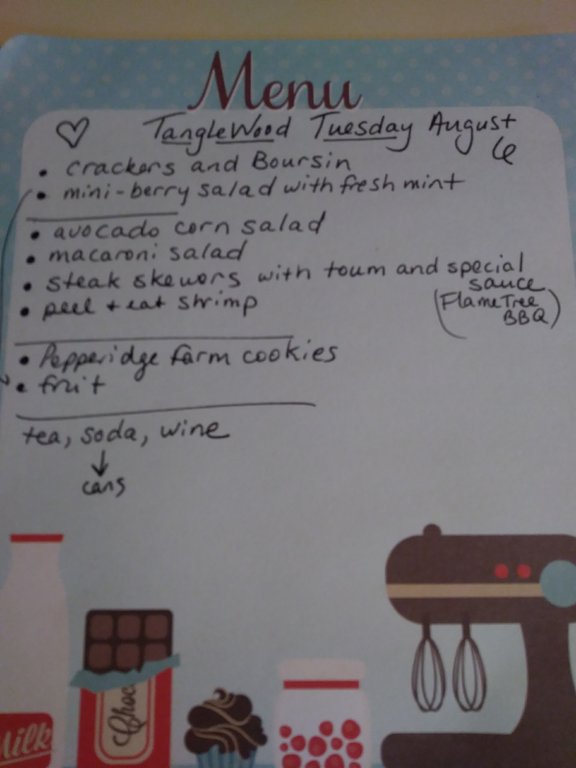 Menu
TangleWood Tuesday August 6
• crackers and Boursin
• mini-berry salad with fresh mint
• avocado corn salad
• macaroni salad
• steak skewors with toum and special sauce
(FlameTree BBQ)
• peel + eat shrimp
• Pepperidge farm cookies
• fruit
tea, soda, wine
cans
Milk
Choc